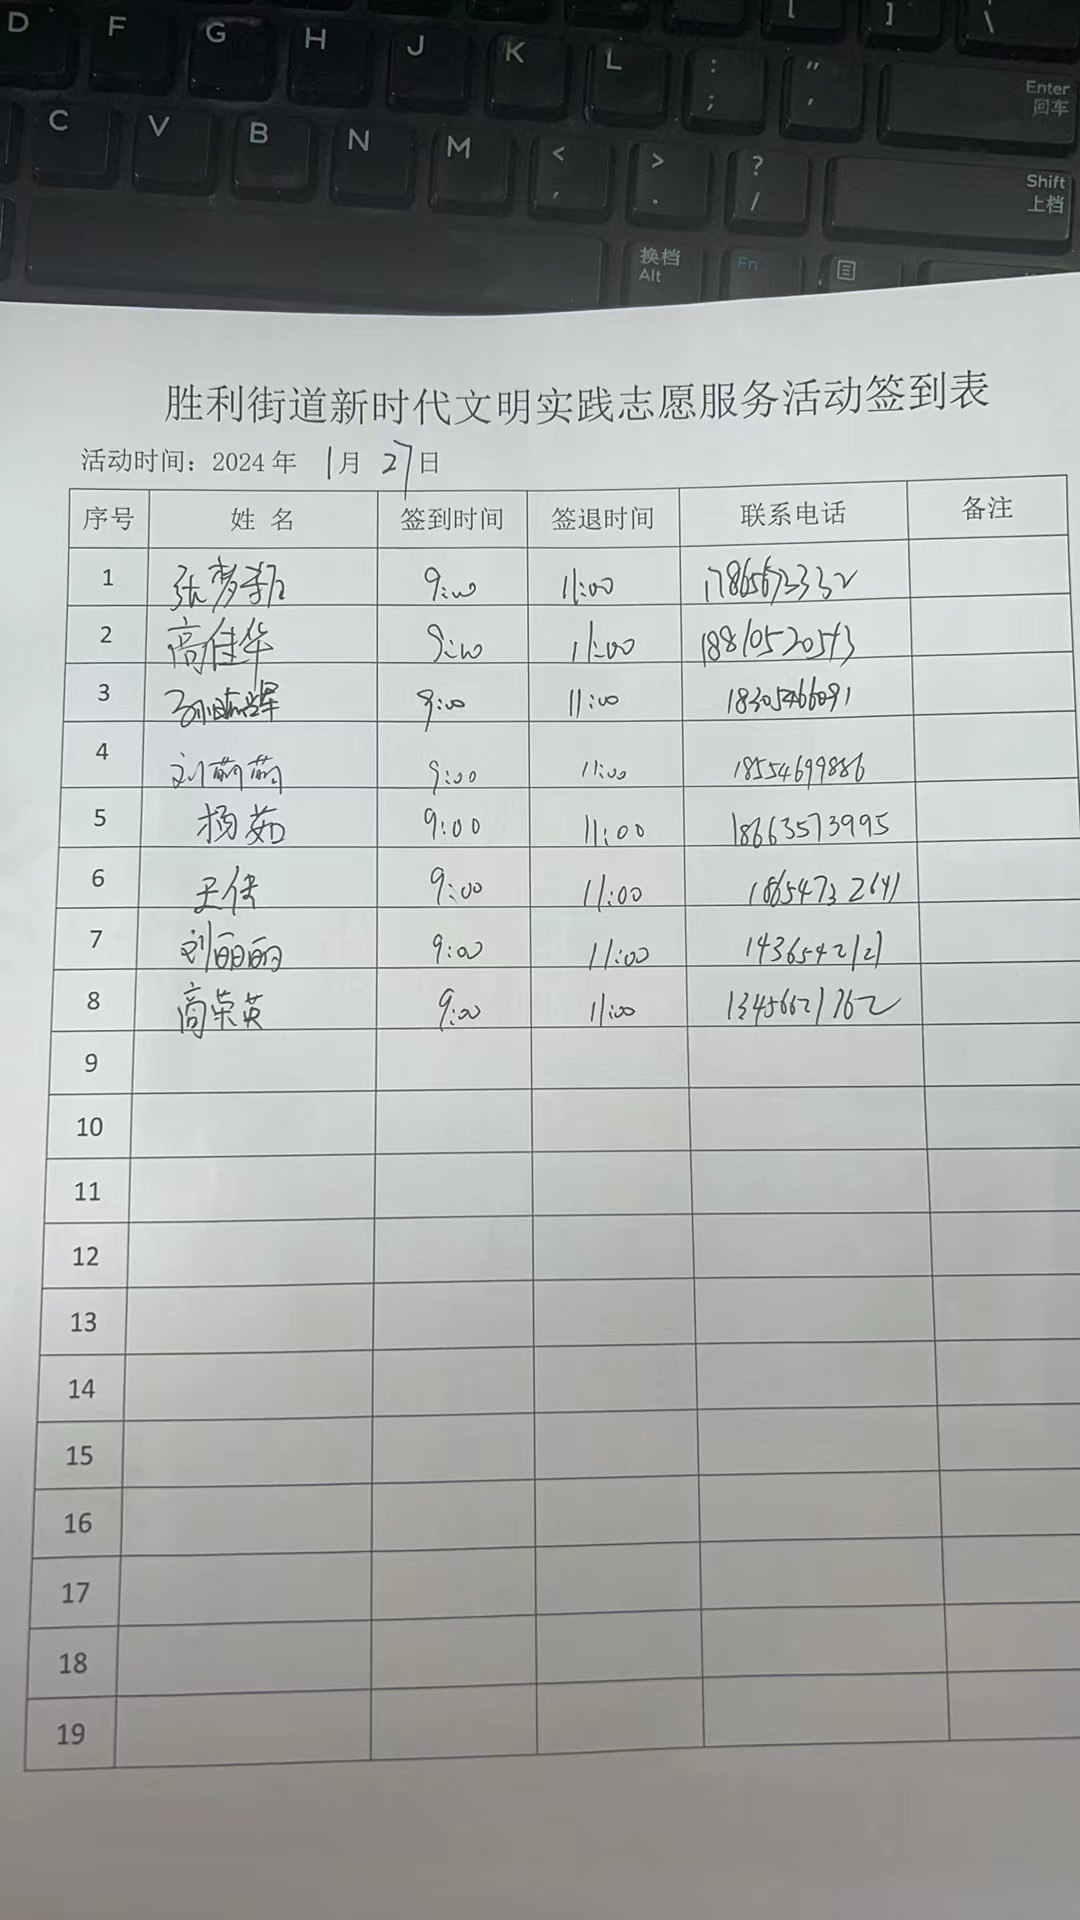 D F G H J K L : ; " ' [ ] \ Enter 回车
C V B N M < , > . ? / Shift 上档
换档 Alt Fn
胜利街道新时代文明实践志愿服务活动签到表
活动时间：2024 年 1月 27日
序号 姓 名 签到时间 签退时间 联系电话 备注
1 张梦 9:00 11:00 17865673332
2 高佳华 9:00 11:00 18810520513
3 9:00 11:00 18305466091
4 刘萌萌 9:00 11:00 18554699886
5 杨茹 9:00 11:00 18663573995
6 王 9:00 11:00
7 刘丽丽 9:00 11:00 1436542121
8 高荣英 9:00 11:00 13456621762
9
10
11
12
13
14
15
16
17
18
19